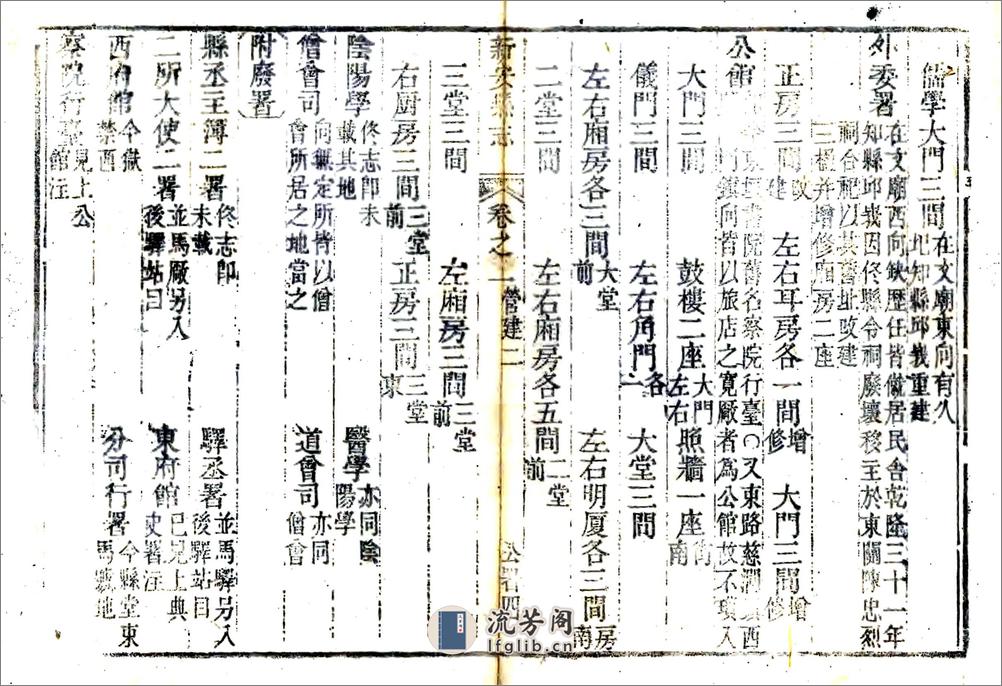 儒學大門三間在文廟東向有久圮知縣邱峩重建
外委署在文廟西向缺歷任皆僦居民舍乾隆三十一年知縣邱峩因佟縣令祠廢壞移主於東關陳忠烈祠合祀以其舊址改建
正房三間改建 三楹并增修 房二座 左右耳房各一間增修 大門三間增修
公館 書院舊名察院行臺○又東路慈澗 西 鎮向皆以旅店之寬厰者為公館故不 入
大門三間 鼓樓二座大門左右 照牆一座街南
儀門三間 左右角門各一 大堂三間
左右廂房各三間大堂前
二堂三間 左右廂房各五間二堂前 左右明厦各三間房南
新安縣志 卷之二 營建二 公署四
三堂三間 左廂房三間三堂前
右厨房三間三堂前 正房三間三堂東
陰陽學佟志卽未載其地 醫學亦同陰陽學
僧會司向無定所皆以僧會所居之地當之 道會司亦同僧會
附廢署
縣丞主簿二署佟志卽未載 驛丞署並馬驛另入後驛站曰
二所大使二署並馬厰另入後驛站曰 東府館已見上典史署注
西府館今獄禁西 分司行署今縣堂東馬 地
察院行臺見上公館注
流芳阁
lfglib.com